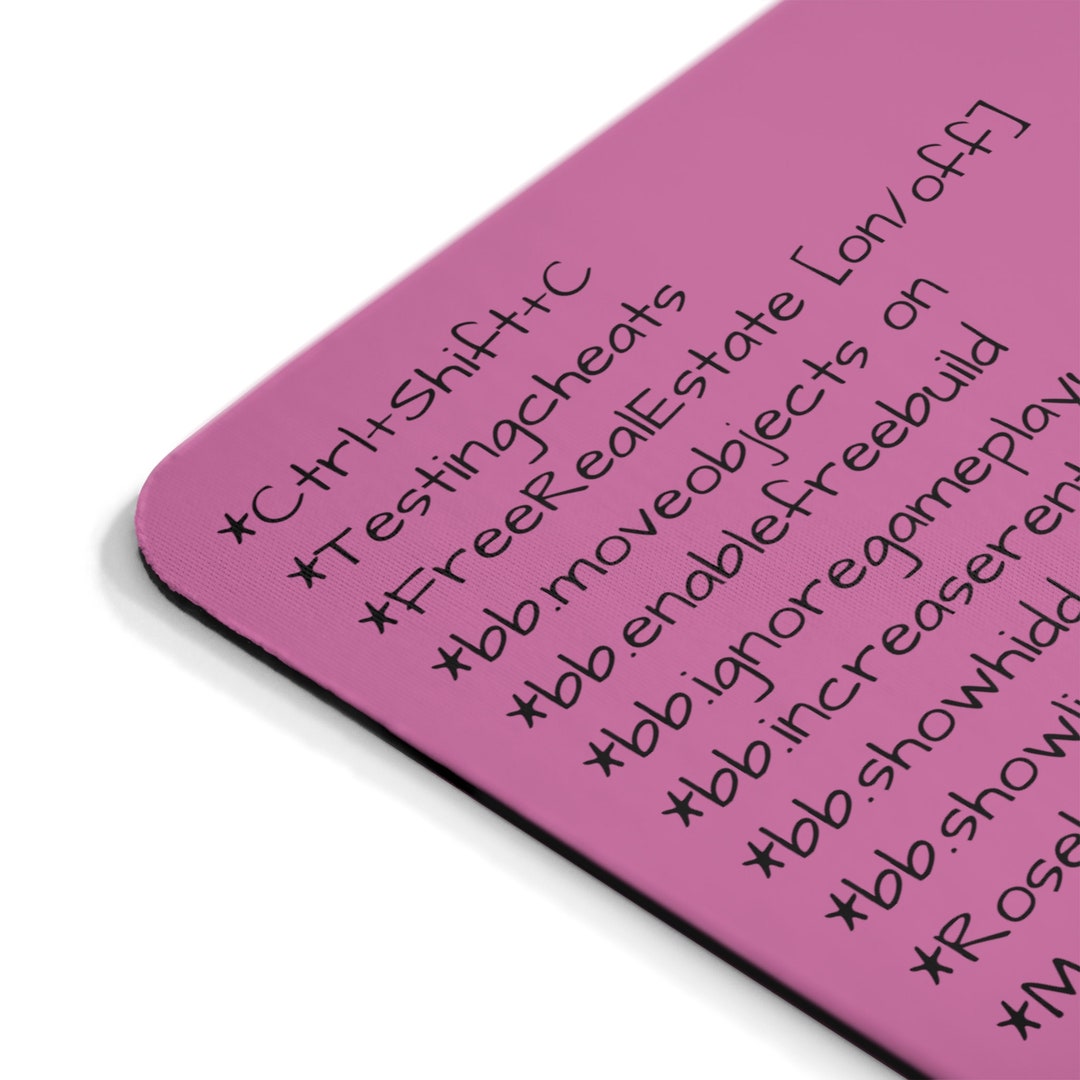 *Ctrl+Shift+C
*Testingcheats
*FreeRealEstate [on/off]
*bb.moveobjects on
*bb.enablefreebuild
*bb.ignoregameplayu
*bb.increaserent
*bb.showhidd
*bb.showli
*Roseb
*M